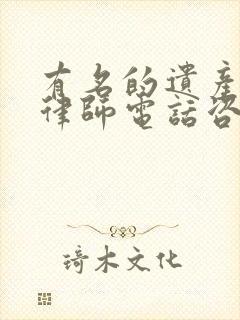 有名的遺產
律師電話咨
琦木文化